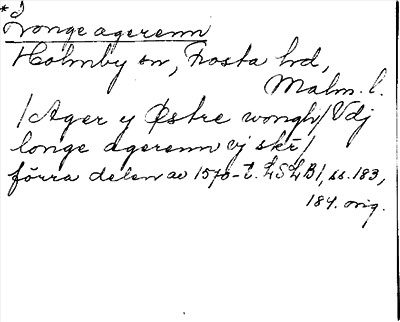 *I
Longe agerenn
Holmby sn, Frosta hd,
Malm. l.
/Ager y Østre wongh/ Vdj
longe agerenn vj skr/
förra delen av 1570-t. LSLB1, ss. 183,
184. orig.